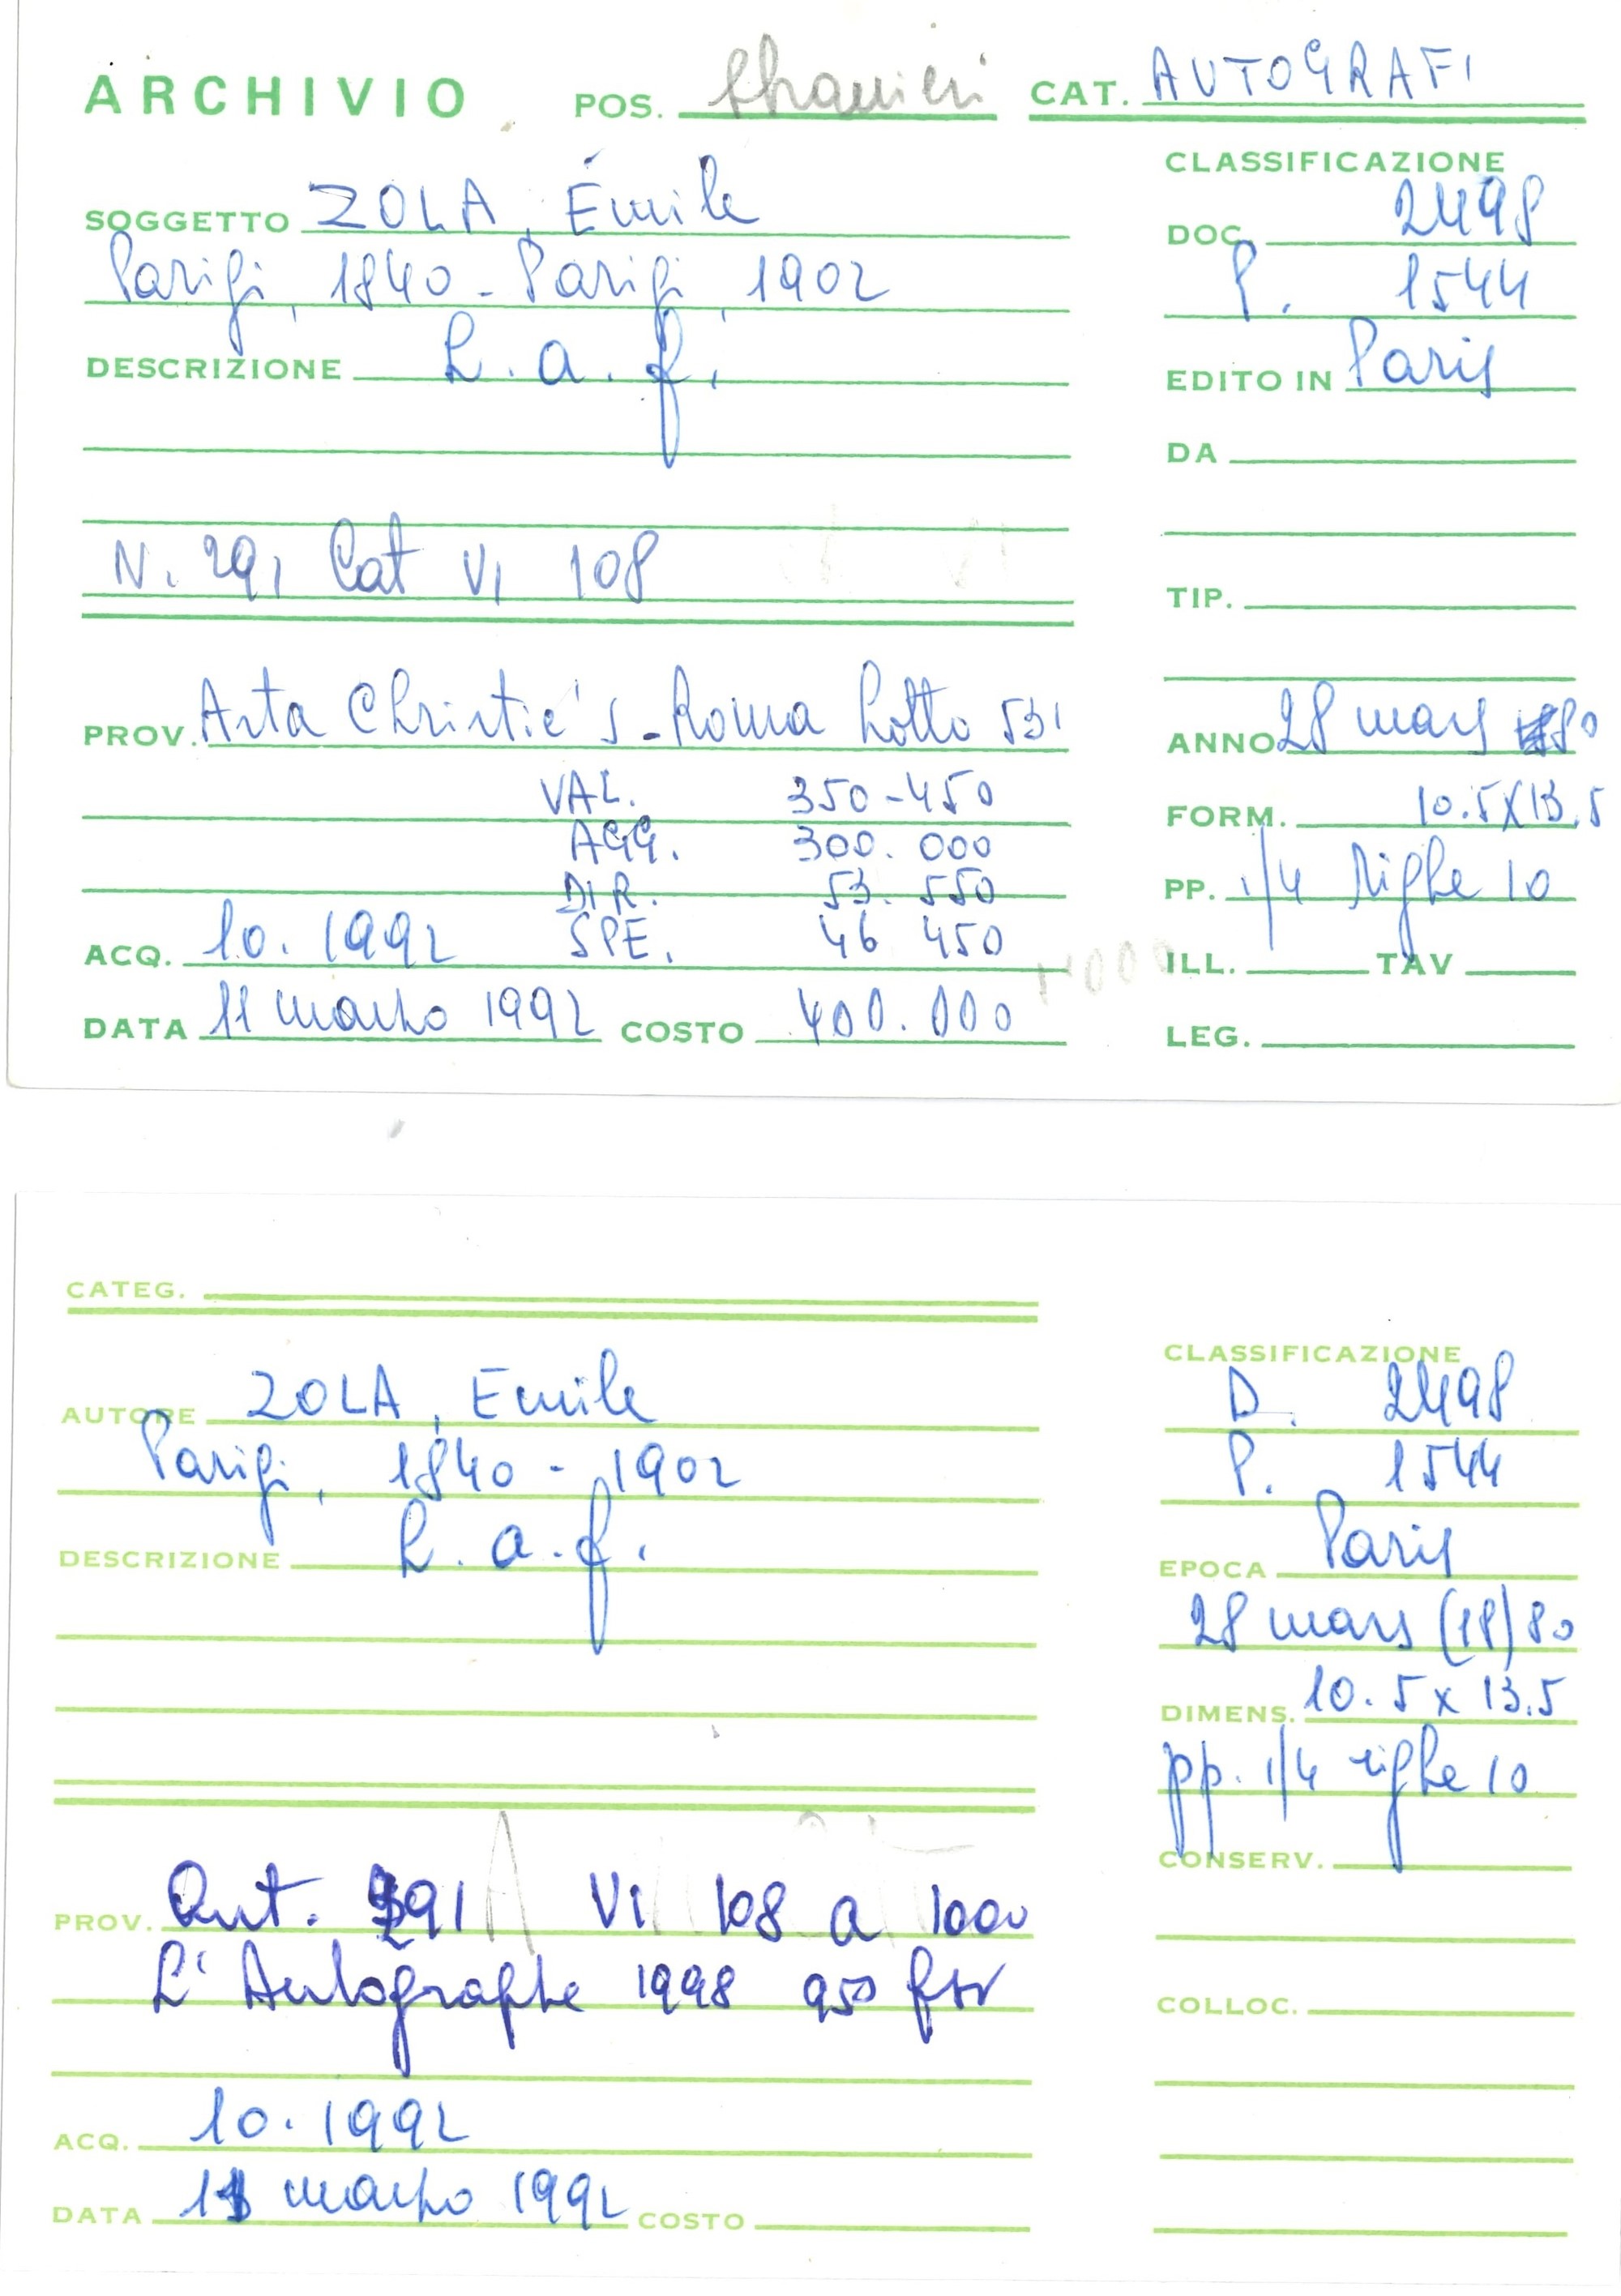 ARCHIVIO POS. Stranieri CAT. AUTOGRAFI
SOGGETTO ZOLA, Émile
Parigi, 1840 - Parigi, 1902
DESCRIZIONE L. a. f.
N. 291 Cat VI 108
PROV. Asta Christie's - Roma Lotto 531
VAL. 350-450
AGG. 300.000
DIR. 53.550
ACQ. 10.1992 SPE. 46 450
DATA 11 marzo 1992 COSTO 400.000
CLASSIFICAZIONE
DOC. 2498
P. 1544
EDITO IN Paris
DA
TIP.
ANNO 28 mars 80
FORM. 10.5X13.5
PP. 1/4 righe 10
ILL. TAV
LEG.
CATEG.
AUTORE ZOLA, Emile
Parigi, 1840 - 1902
DESCRIZIONE L. a. f.
PROV. Aut. 291 VI 108 a 1000
L'Autographe 1998 950 fsv
ACQ. 10.1992
DATA 11 marzo 1992 COSTO
CLASSIFICAZIONE
D. 2498
P. 1544
EPOCA Paris
28 mars (18)80
DIMENS. 10.5 x 13.5
pp. 1/4 righe 10
CONSERV.
COLLOC.